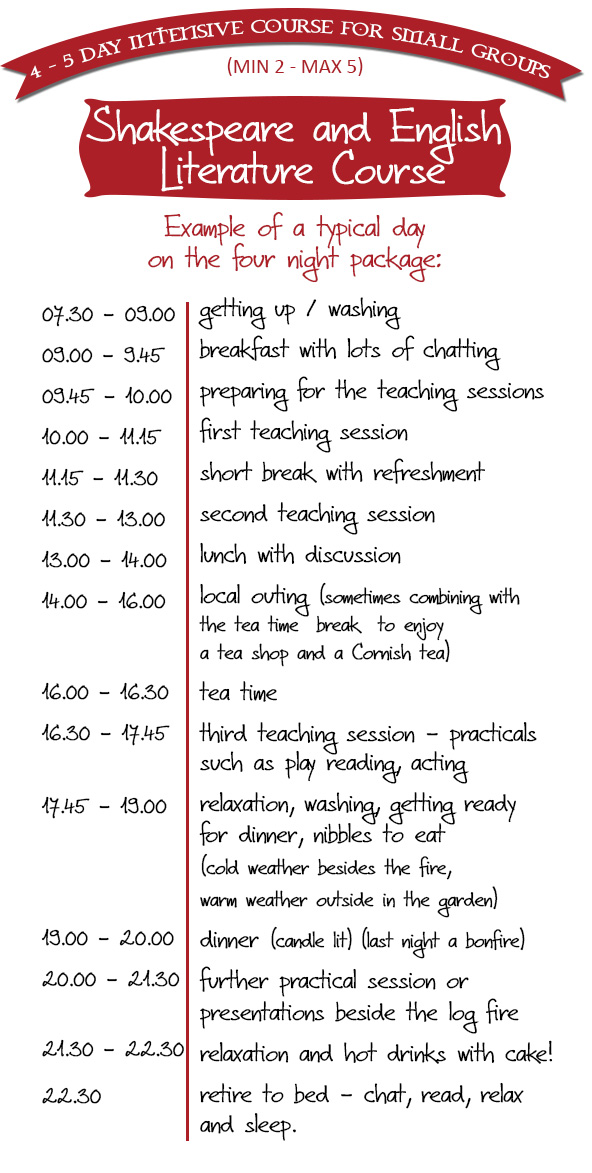 4 - 5 DAY INTENSIVE COURSE FOR SMALL GROUPS
(MIN 2 - MAX 5)
Shakespeare and English
Literature Course
Example of a typical day
on the four night package:
07.30 - 09.00 getting up / washing
09.00 - 9.45 breakfast with lots of chatting
09.45 - 10.00 preparing for the teaching sessions
10.00 - 11.15 first teaching session
11.15 - 11.30 short break with refreshment
11.30 - 13.00 second teaching session
13.00 - 14.00 lunch with discussion
14.00 - 16.00 local outing (sometimes combining with
the tea time break to enjoy
a tea shop and a Cornish tea)
16.00 - 16.30 tea time
16.30 - 17.45 third teaching session - practicals
such as play reading, acting
17.45 - 19.00 relaxation, washing, getting ready
for dinner, nibbles to eat
(cold weather besides the fire,
warm weather outside in the garden)
19.00 - 20.00 dinner (candle lit) (last night a bonfire)
20.00 - 21.30 further practical session or
presentations beside the log fire
21.30 - 22.30 relaxation and hot drinks with cake!
22.30 retire to bed - chat, read, relax
and sleep.